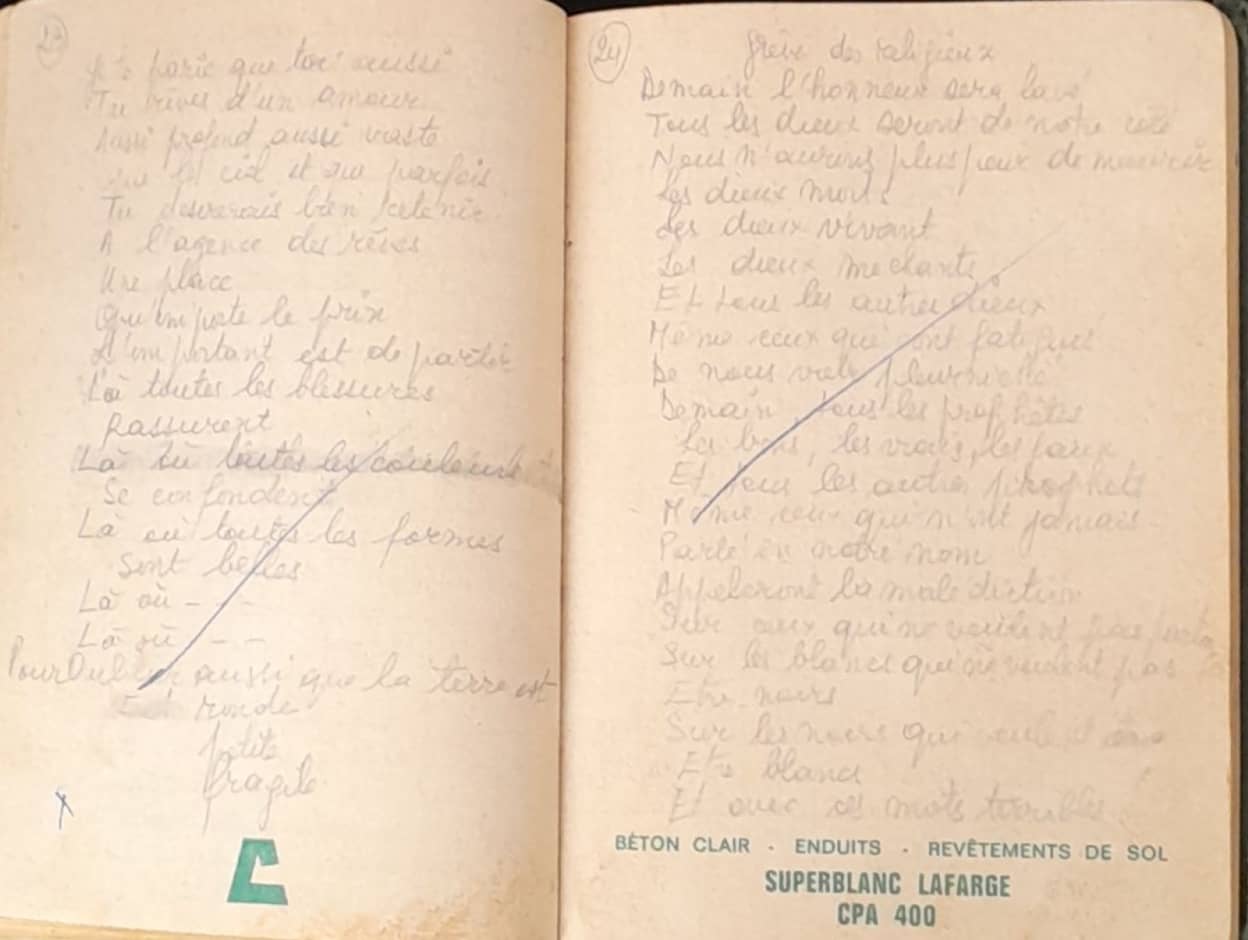 23
Je parie que toi aussi
Tu rêves d'un amour
Aussi profond aussi vaste
Que le ciel et que parfois
Tu désirerais bien retenir
A l'agence des rêves
Une place
Qu'importe le prix
L'important est de partir
Là toutes les blessures
Rassurent
Là où toutes les couleurs
Se confondent
Là où toutes les formes
Sont belles
Là où - - -
Là où - -
Pour Oublier aussi que la terre est
ronde
petite
fragile
X
24
Grève des religieux
Demain l'honneur sera lavé
Tous les dieux seront de notre coté
Nous n'aurons plus peur de mourir
Les dieux morts
Les dieux vivant
Les dieux mechants
Et tous les autres dieux
Même ceux qui sont fatigués
De nous voir pleurnicher
Demain tous les prophètes
Les bons, les vrais, les faux
Et tous les autres prophets
Même ceux qui n'ont jamais
Parlé en notre nom
Appeleront la malediction
Sur ceux qui ne veulent pas
Sur les blancs qui ne veulent pas
Etre noirs
Sur les noirs qui veulent
Etre blancs
Et avec ces mots terribles
BÉTON CLAIR - ENDUITS - REVÊTEMENTS DE SOL
SUPERBLANC LAFARGE
CPA 400